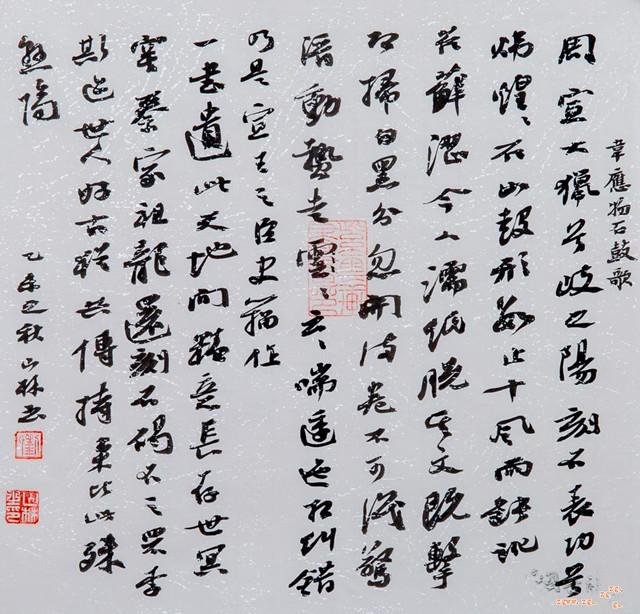 韋應物石鼓歌
周宣大獵兮岐之陽刻石表功兮
煒煌々石如鼓形數止十風雨缺訛
苔蘚澀今人濡紙脫其文既擊
既掃白黑分忽開滿卷不可識驚
潛動蟄走雲々云々喘逶迤相糾錯
乃是宣王之臣史籀作
一書遺此天地間精意長存世冥
寞秦家祖龍還刻石碣石之罘李
斯迹世人好古猶共傳持來比此殊
懸隔
乙未之秋山林書